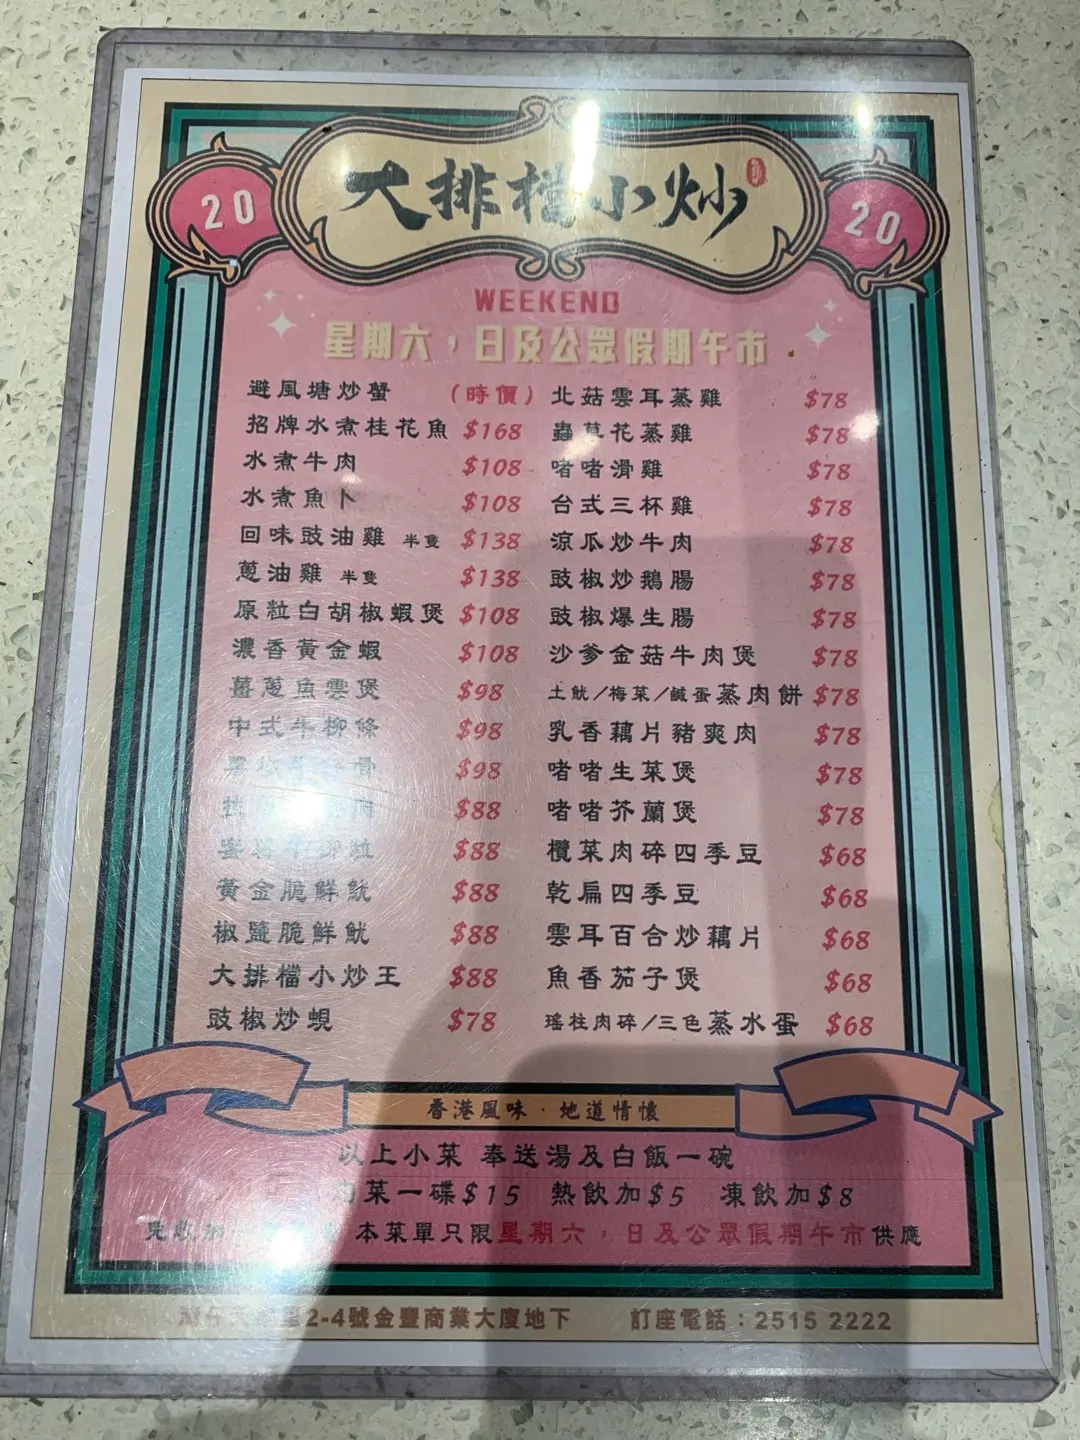 20
大排檔小炒
20
WEEKEND
星期六，日及公眾假期午市
避風塘炒蟹 (時價)
招牌水煮桂花魚 $168
水煮牛肉 $108
水煮魚卜 $108
回味豉油雞 半隻 $138
蔥油雞 半隻 $138
原粒白胡椒蝦煲 $108
濃香黃金蝦 $108
薑蔥魚雲煲 $98
中式牛柳條 $98
骨 $98
肉 $88
粒 $88
黃金脆鮮魷 $88
椒鹽脆鮮魷 $88
大排檔小炒王 $88
豉椒炒蜆 $78
北菇雲耳蒸雞 $78
蟲草花蒸雞 $78
啫啫滑雞 $78
台式三杯雞 $78
涼瓜炒牛肉 $78
豉椒炒鵝腸 $78
豉椒爆生腸 $78
沙爹金菇牛肉煲 $78
土魷/梅菜/鹹蛋蒸肉餅 $78
乳香藕片豬爽肉 $78
啫啫生菜煲 $78
啫啫芥蘭煲 $78
欖菜肉碎四季豆 $68
乾扁四季豆 $68
雲耳百合炒藕片 $68
魚香茄子煲 $68
瑤柱肉碎/三色蒸水蛋 $68
香港風味·地道情懷
以上小菜 奉送湯及白飯一碗
菜一碟$15 熱飲加$5 凍飲加$8
免收加一 本菜單只限星期六，日及公眾假期午市供應
2-4號金豐商業大廈地下 訂座電話：2515 2222